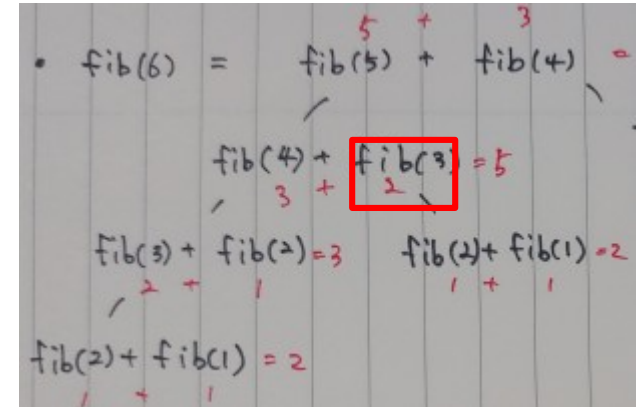 5 + 3
• fib(6) = fib(5) + fib(4) =
fib(4) + fib(3) = 5
3 + 2
fib(3) + fib(2) = 3 fib(2) + fib(1) = 2
2 + 1 1 + 1
fib(2) + fib(1) = 2
1 + 1